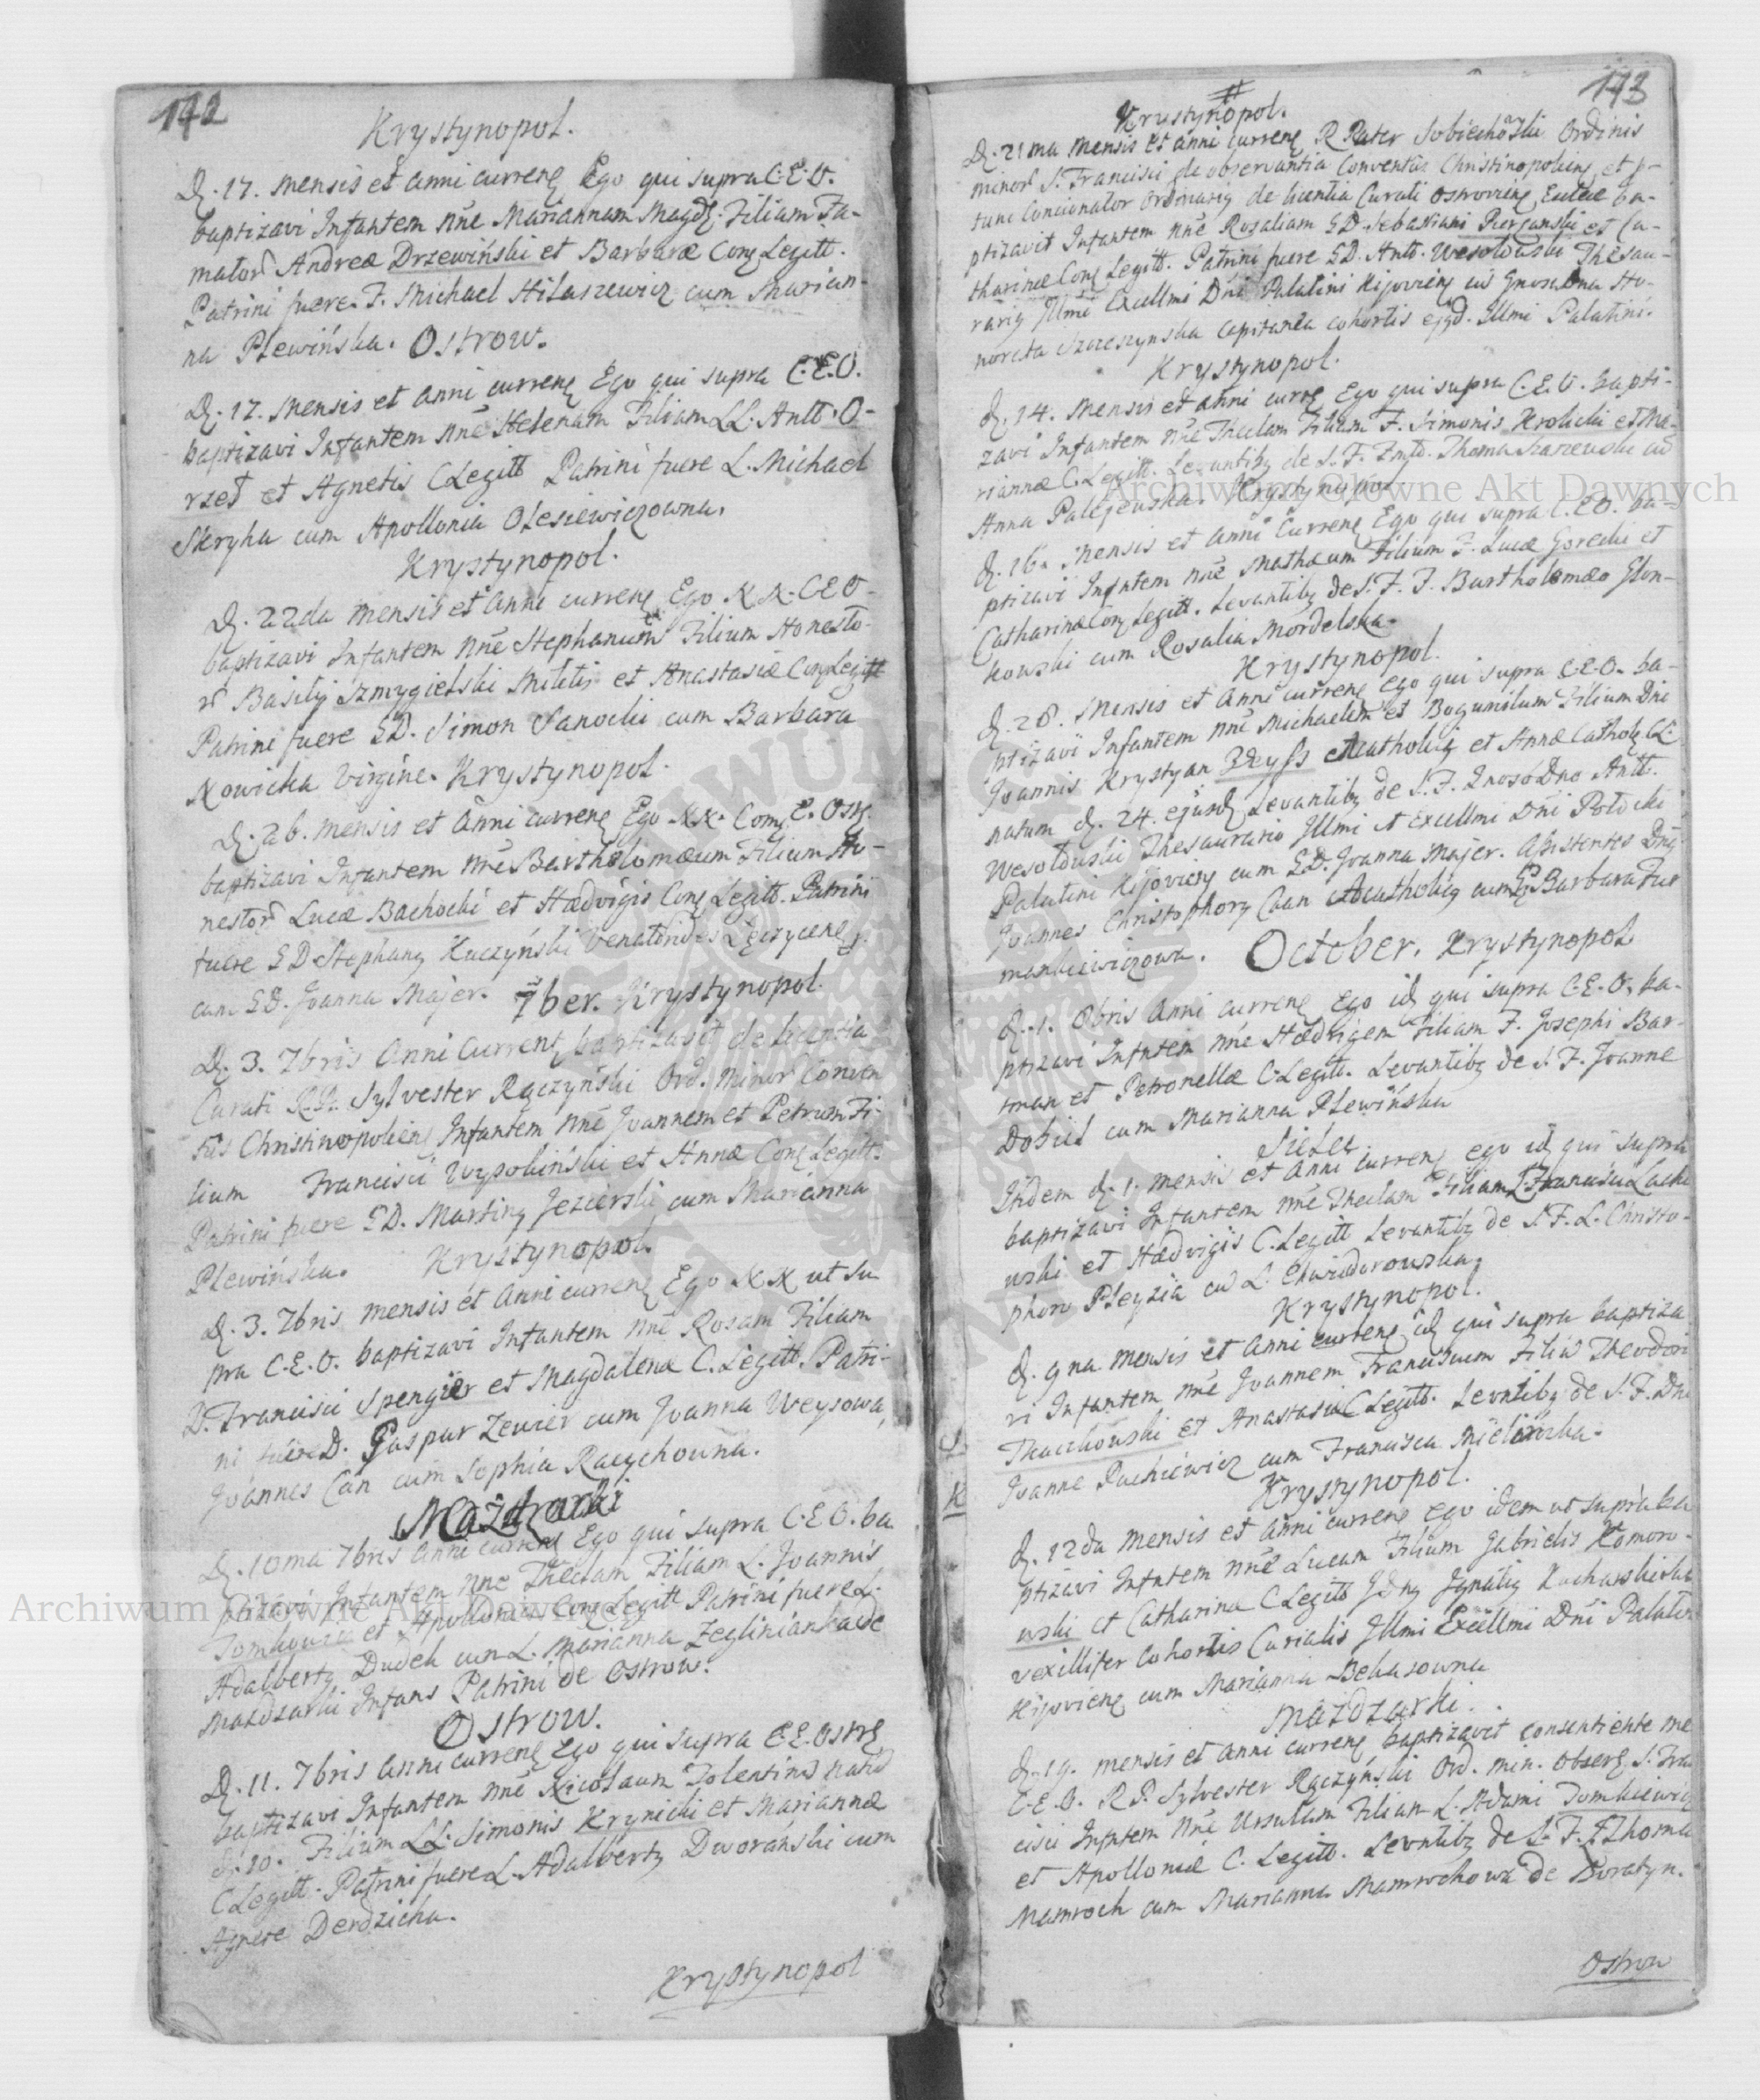 172
Krystynopol.
D. 17. Mensis et Anni curren. Ego qui supra C. E. O.
baptizavi Infantem nñe Mariannam Magd. Filiam Fa-
mator Andreæ Drzewiński et Barbaræ Conj Legitt.
Patrini fuere F. Michael Hilaszewicz cum Marian-
na Plewińska. Ostrow.
D. 17. Mensis et Anni curren. Ego qui supra C. E. O.
baptizavi Infantem nñe Helenam Filiam LL. Antt. O-
rzeł et Agnetis C Legitt Patrini fuere L. Michael
Skryha cum Apollonia Olesiewiczowna.
Krystynopol.
D. 22da Mensis et Anni curren. Ego NN. C E O
baptizavi Infantem nñe Stephanum Filium Honesto-
r Basilij Szmygielski Militis et Anastasiæ Conj Legitt
Patrini fuere GD. Simon Sanocki cum Barbara
Nowicka Virgine. Krystynopol.
D. 26. Mensis et Anni curren. Ego NN. Com. E. Ostr.
baptizavi Infantem nñe Bartholomæum Filium Ho-
nestor Lucæ Bachocki et Hædvigis Conj Legitt. Patrini
fuere GD Stephany Kuczyński Venatorides Łęczycen.
cum GD. Joanna Majer. 7ber. Krystynopol.
D. 3. 7bris Anni Current baptizavit de licentia
Curati R.P. Sylvester Rączyński Ord. Minor Conven
tus Christinopolien. Infantem nñe Joannem et Petrum Fi-
lium Francisci Wysokiński et Annæ Conj Legitt.
Patrini fuere GD. Martiny Jezierski cum Marianna
Plewińska. Krystynopol.
D. 3. 7bris mensis et Anni curren. Ego NN ut su
pra C. E. O. baptizavi Infantem nñe Rosam Filiam
D. Francisci Spengier et Magdalenæ C. Legitt. Patri-
ni fuere D. Gaspar Zewier cum Joanna Weysowa,
Joannes Can cum Sophia Raczchowna.
Mażdżarki
D. 10ma 7bris Anni curren Ego qui supra C. E O. ba
ptizavi Infantem nñe Theclam Filiam L. Joannis
et Apolloniæ Conj Legitt Patrini fuere L.
Adalberty Dudek cum L. Marianna Zeglinianka de
Mażdżarki Infans Patrini de Ostrow.
Ostrow.
D. 11. 7bris Anni curren Ego qui supra C. E. Ostr.
baptizavi Infantem nñe Nicolaum Tolentinū natū
d. 10. Filium LL. Simonis Krynicki et Mariannæ
C Legitt. Patrini fuere L. Adalberty Dworański cum
Agnete Derdzicha.
Krystynopol
173
Krystynopol.
D. 21ma Mensis et Anni curren. R Pater Ordinis
minor S. Francisci de observantia Conventus Christinopolien. et p-
tunc Concionator Ordinarig de licentia Curati Ostrovien. Ecclæ ba-
ptizavit Infantem nñe Rosaliam GD. Sebastiani et Ca-
tharinæ Conj Legitt. Patrini fuere GD. Antt. Wesołowski Thesau-
rarig Illmi Excellmi Dni Palatini Kijovien. cū Gnosa Dna Ho-
norata Szczeszynska Capitanea cohortis ejqd. Illmi Palatini.
Krystynopol.
D. 14. Mensis et Anni curren Ego qui supra C. E. O. bapti-
zavi Infantem nñe Theclam Filiam F. Simonis Krolicki et Ma-
riannæ C. Legitt. Levantibg de S. F. Thoma Szaszewski cū
Anna Palejewska. Krystynopol
D. 16. Mensis et Anni Curren. Ego qui supra C. E O. ba-
ptizavi Infntem nñe Mathæum Filium F. Lucæ Gorecki et
Catharinæ Conj Legitt. Levantibg de S. F. F. Bartholomæo Glon-
kowski cum Rosalia Mordelska.
Krystynopol.
D. 28. Mensis et Anni curren. Ego qui supra C. E. O. ba-
ptizavi Infantem nñe Michaelem et Bogumilum Filium Dni
Joannis Krystyan et Annæ Cathol. CL.
natum d. 24. ejusd. Levantibg de S. F. Gnoso Dno Antt.
Wesołowski Thesaurario Illmi et Excellmi Dni Potocki
Palatini Kijovien. cum GD. Joanna Majer. Assistentes Dng
Joannes Christophory Caan Acatholicg cum GD Barbara Fur
mankiewiczowa. October. Krystynopol
D. 1. 8bris Anni curren. Ego id. qui supra C. E. O. ba-
ptizavi Infntem nñe Hædvigem Filiam F. Josephi Bar-
tman et Petronellæ C. Legitt. Levantibg de S. F. Joanne
Dobiel cum Marianna Plewińska
Sielec
Ibidem d. 1. mensis et Anni curren. ego id. qui supra
baptizavi Infantem nñe Theclam Filiam L Francisci Lacko
wski et Hædvigis C. Legitt Levantibg de S. F. L. Christo-
phoro Pleyzia cū L.
Krystynopol.
D. 9na Mensis et Anni curren. id. qui supra baptiza
vi Infantem nñe Joannem Franciscum Filiū Theodori
Tkaczkowski et Anastasiæ C Legitt. Levntibg de S. F. Dno
Joanne Puchiewicz cum Francisca Mielińska.
Krystynopol.
D. 12da Mensis et Anni curren. ego idem ut supra ba
ptizavi Infntem nñe Lucam Filium Gabrielis Komoro-
wski et Catharina C Legitt Gdng Ignatig Kucharski sub
vexillifer Cohortis Curialis Illmi Excellmi Dni Palatin
Kijovien. cum Marianna Bekasowna
Mażdżarki.
D. 19. mensis et Anni curren. baptizavit consentiente me
C. E. O. R P. Sylvester Rączyński Ord. Min. Obser. S. Fran
cisci Infntem nñe Ursulam Filiam L. Adami Tomkiewicz
et Apolloniæ C. Legitt. Levntibg de S. F. L Thoma
Mamroch cum Marianna Mamrochowa de Boratyn.
Ostrow
Archiwum Główne Akt Dawnych
Archiwum Główne Akt Dawnych